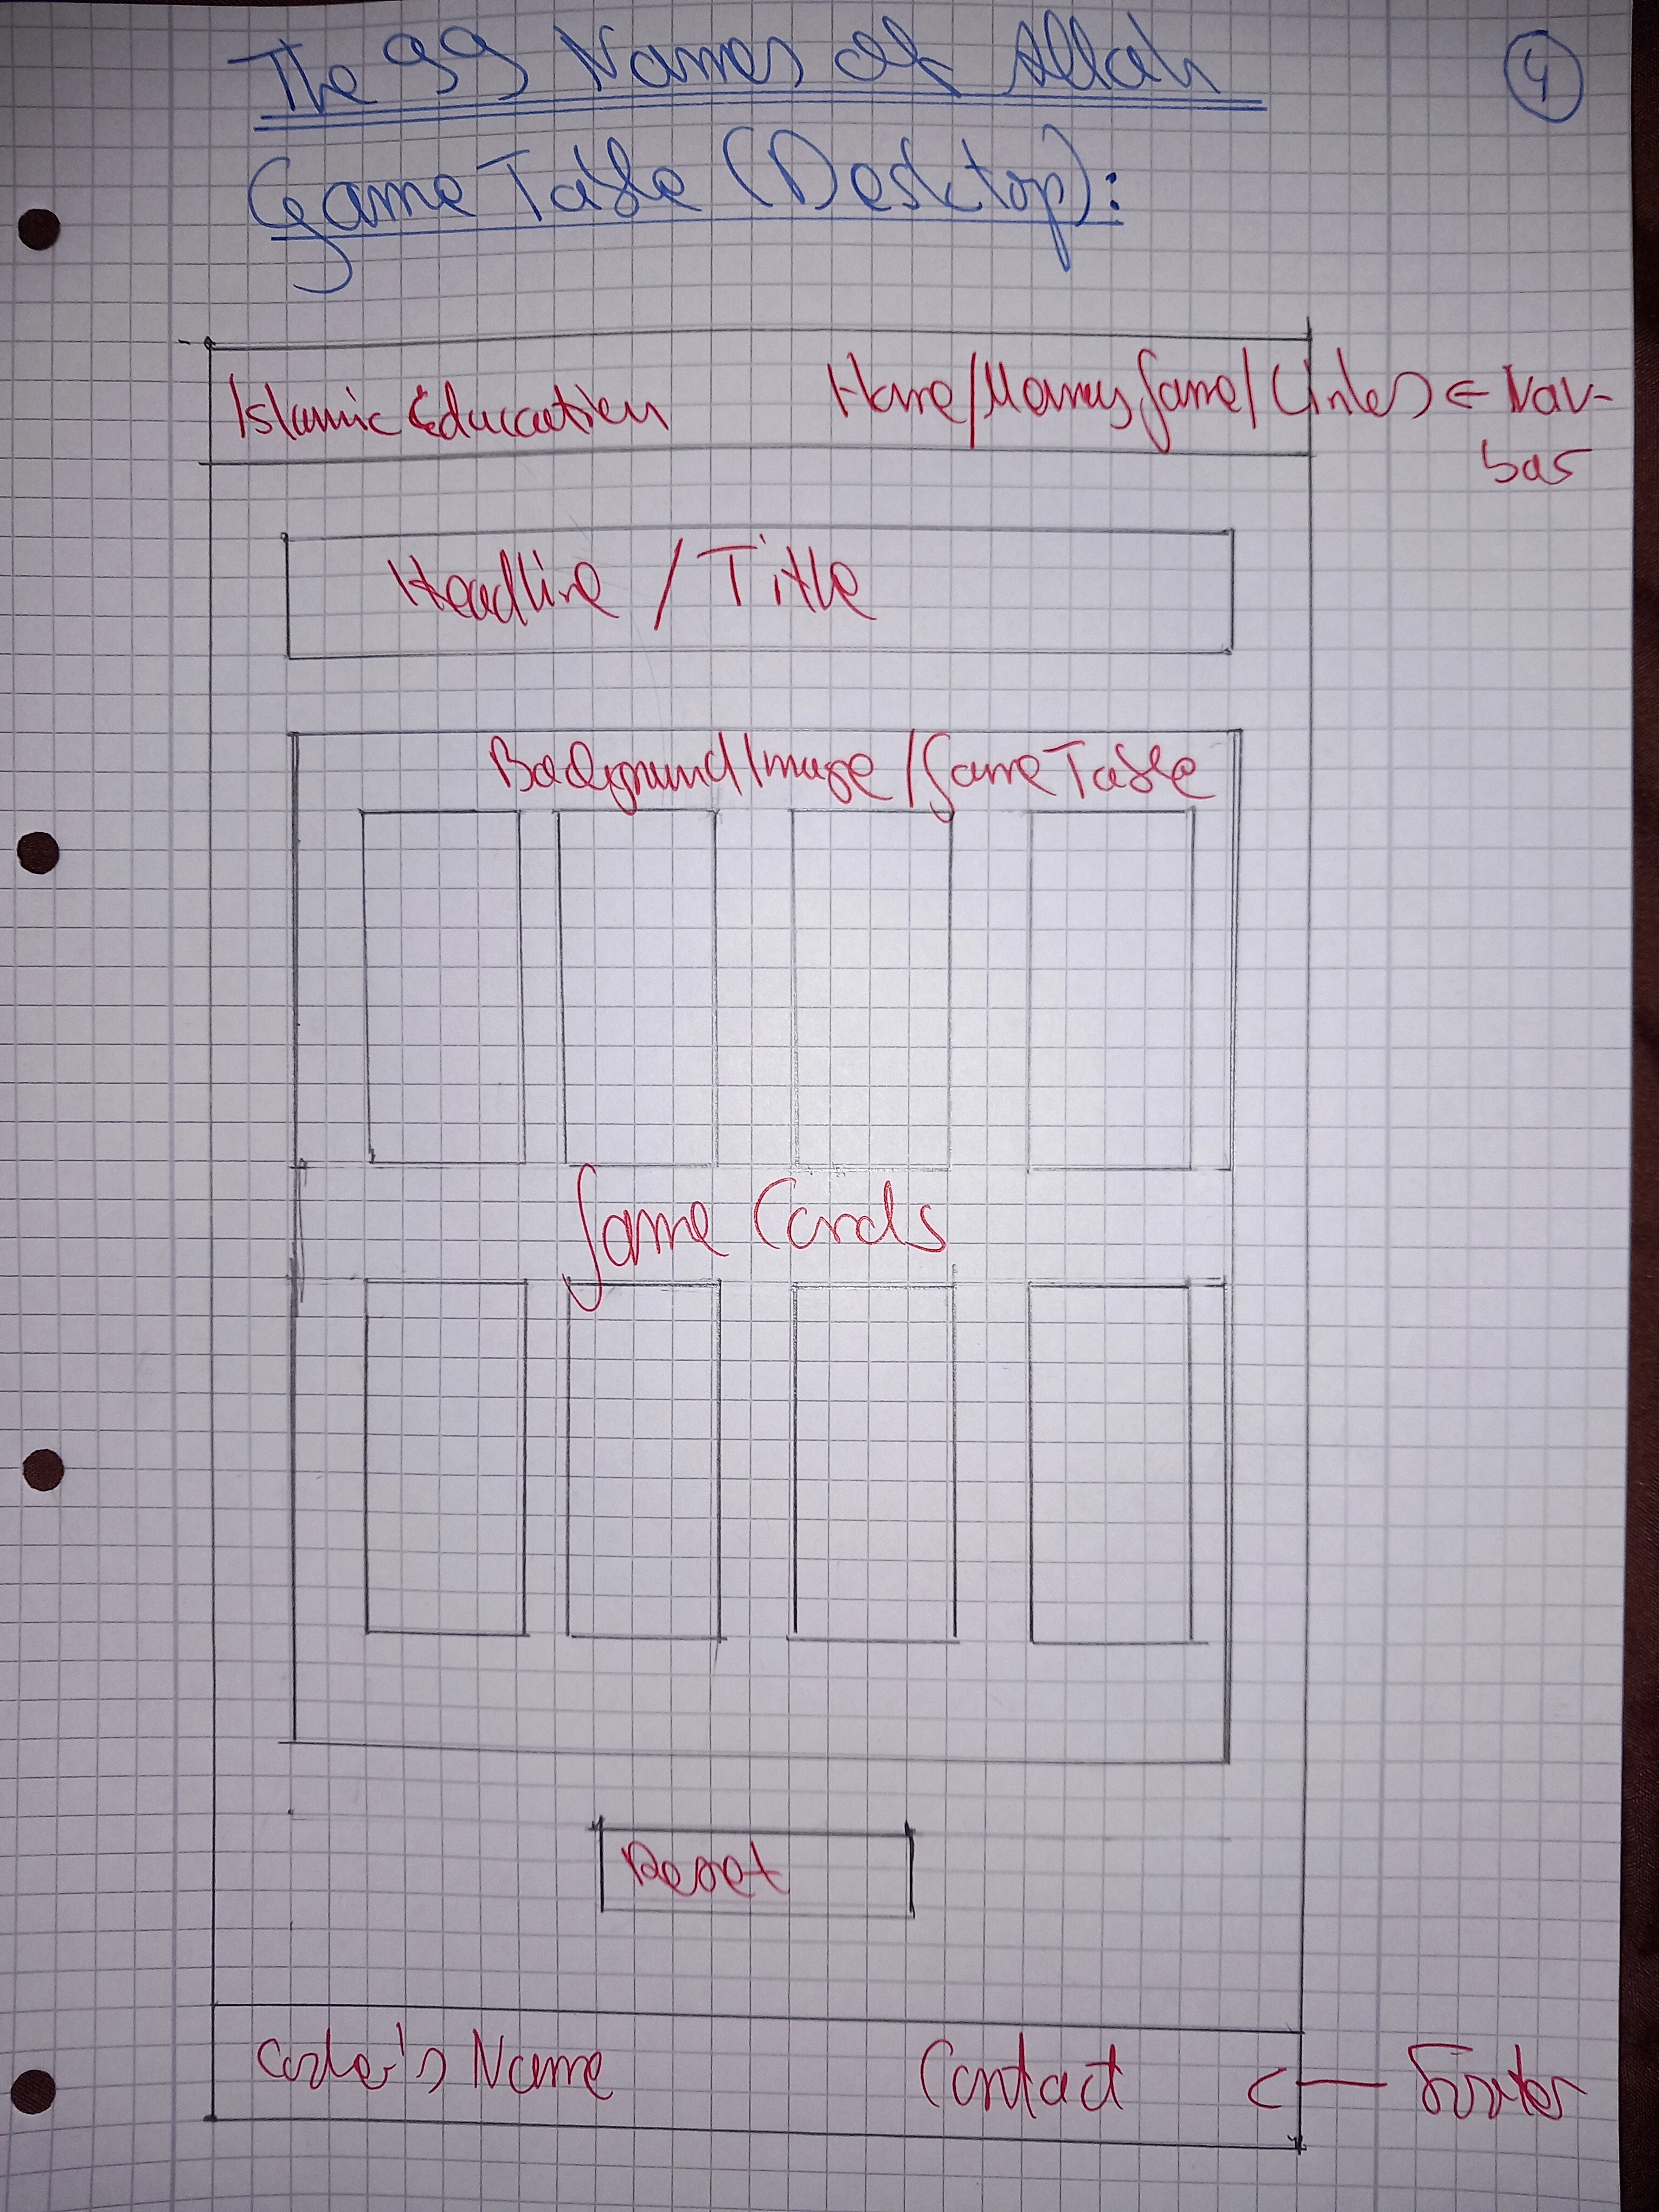 The 99 Names of Allah
4
Game Table (Desktop):
Islamic Education Home/Memory Game/Links ← Nav-
bar
Headline / Title
Background Image/Game Table
Game Cards
Reset
Coder's Name Contact ← Footer